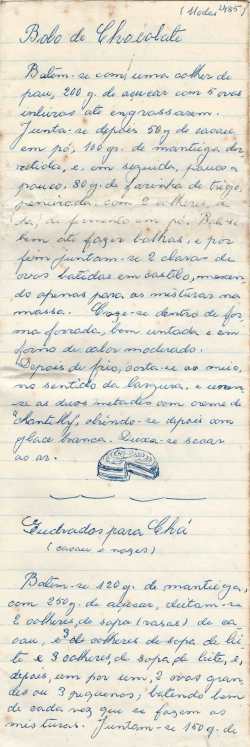 (Modas 485)
Bolo de Chocolate
Batem-se com uma colher de
pau, 200 g. de açucar com 5 ovos
inteiros até engrossarem.
Junta-se depois 50 g de cacau
em pó, 100 grs. de manteiga der-
retida, e, em seguida, pouco a
pouco, 80 g. de farinha de trigo,
peneirada, com 2 colheres, de
chá, de fermento em pó. Bate-se
bem até fazer bolhas, e por
fim juntam-se 2 claras de
ovos batidas em castelo, mexen-
do apenas para as misturar na
massa. Coze-se dentro de for-
ma forrada, bem untada e em
forno de calor moderado.
Depois de frio, corta-se ao meio,
no sentido da largura, e unem-
se as duas metades com creme de
Chantilly, cobrindo-se depois com
glace branca. Deixa-se secar
ao ar.
Quadrados para Chá
(cacau e nozes)
Batem-se 120 g. de manteiga,
com 250 g. de açucar, deitam-se
2 colheres, de sopa (rasas) de ca
cau, e 3 de colheres de sopa de lei-
te e 3 colheres, de sopa, de leite, e,
depois, um por um, 2 ovos gran-
des ou 3 pequenos; batendo bem
de cada vez que se fazem as
misturas. Juntam-se 150 g. de